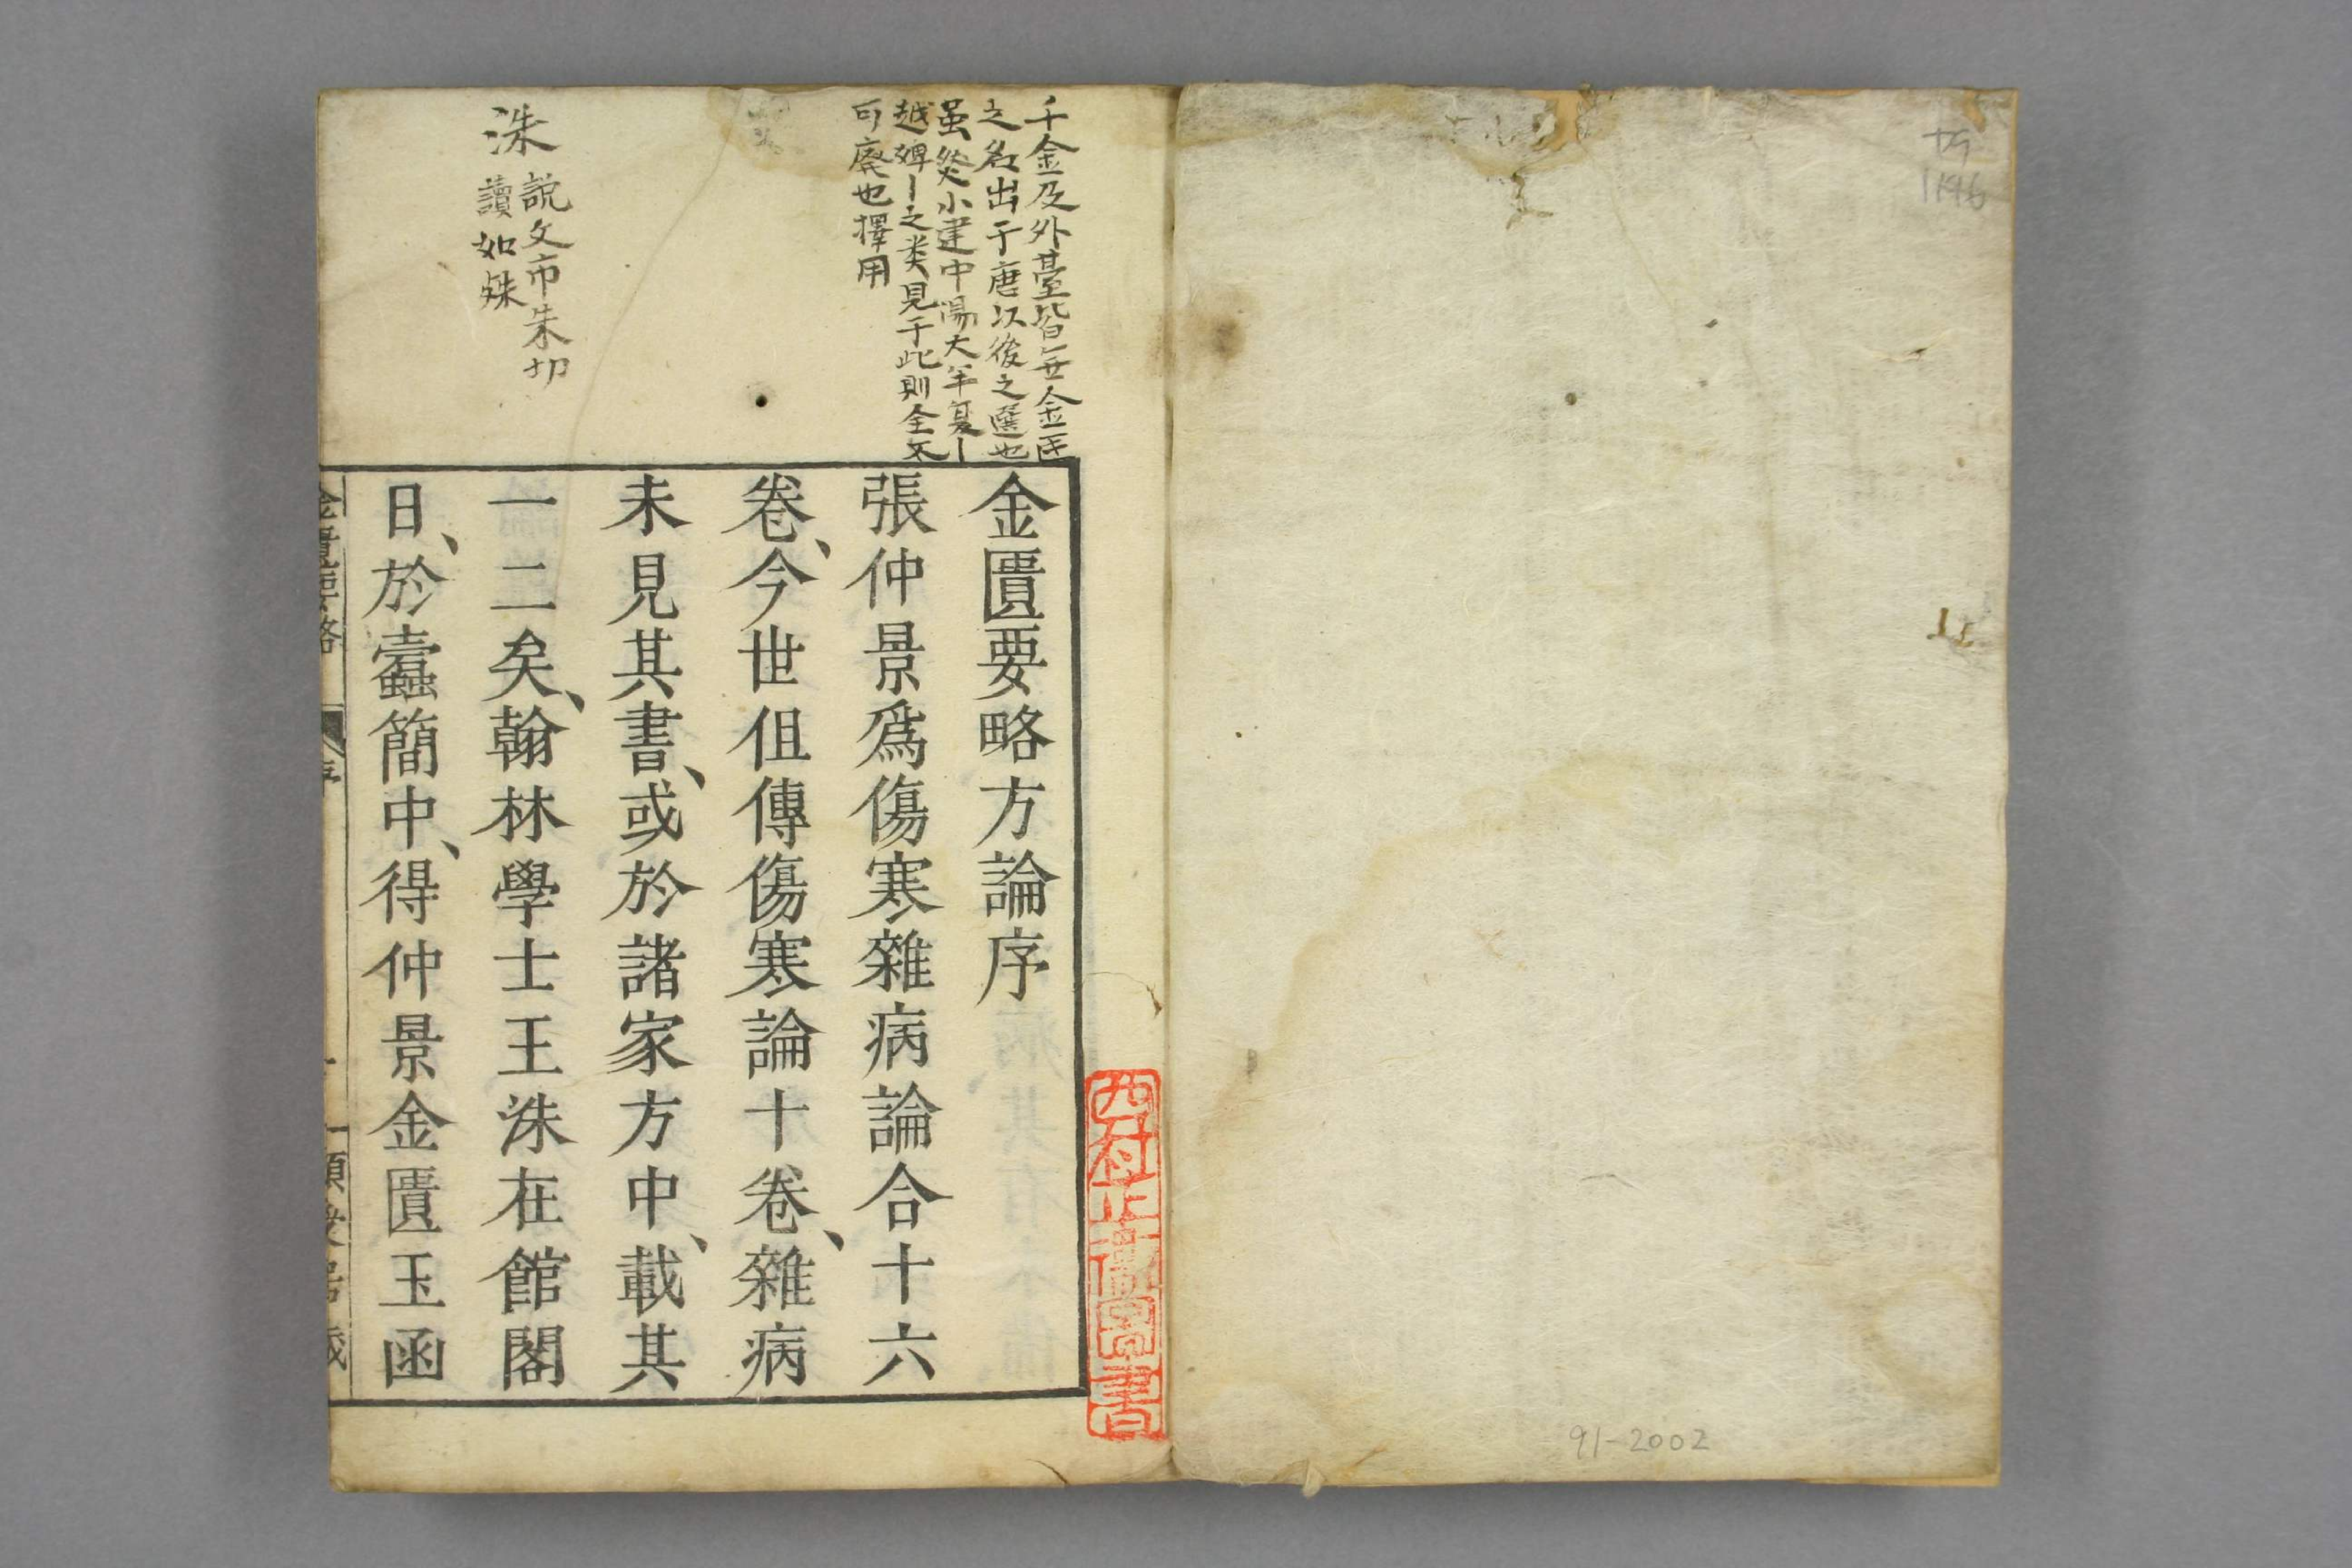 千金及外臺皆無金匱
之名出于唐以後之選也
虽然小建中湯大半夏丨
越婢丨之类見于此則全不
可廢也擇用
洙
説文市朱切
讀如殊
金匱要略方論序
張仲景爲傷寒雜病論合十六
卷、今世但傳傷寒論十卷、雜病
未見其書、或於諸家方中、載其
一二矣、翰林學士王洙在館閣
日、於蠹簡中、得仲景金匱玉函
金匱要略 序
91-2002